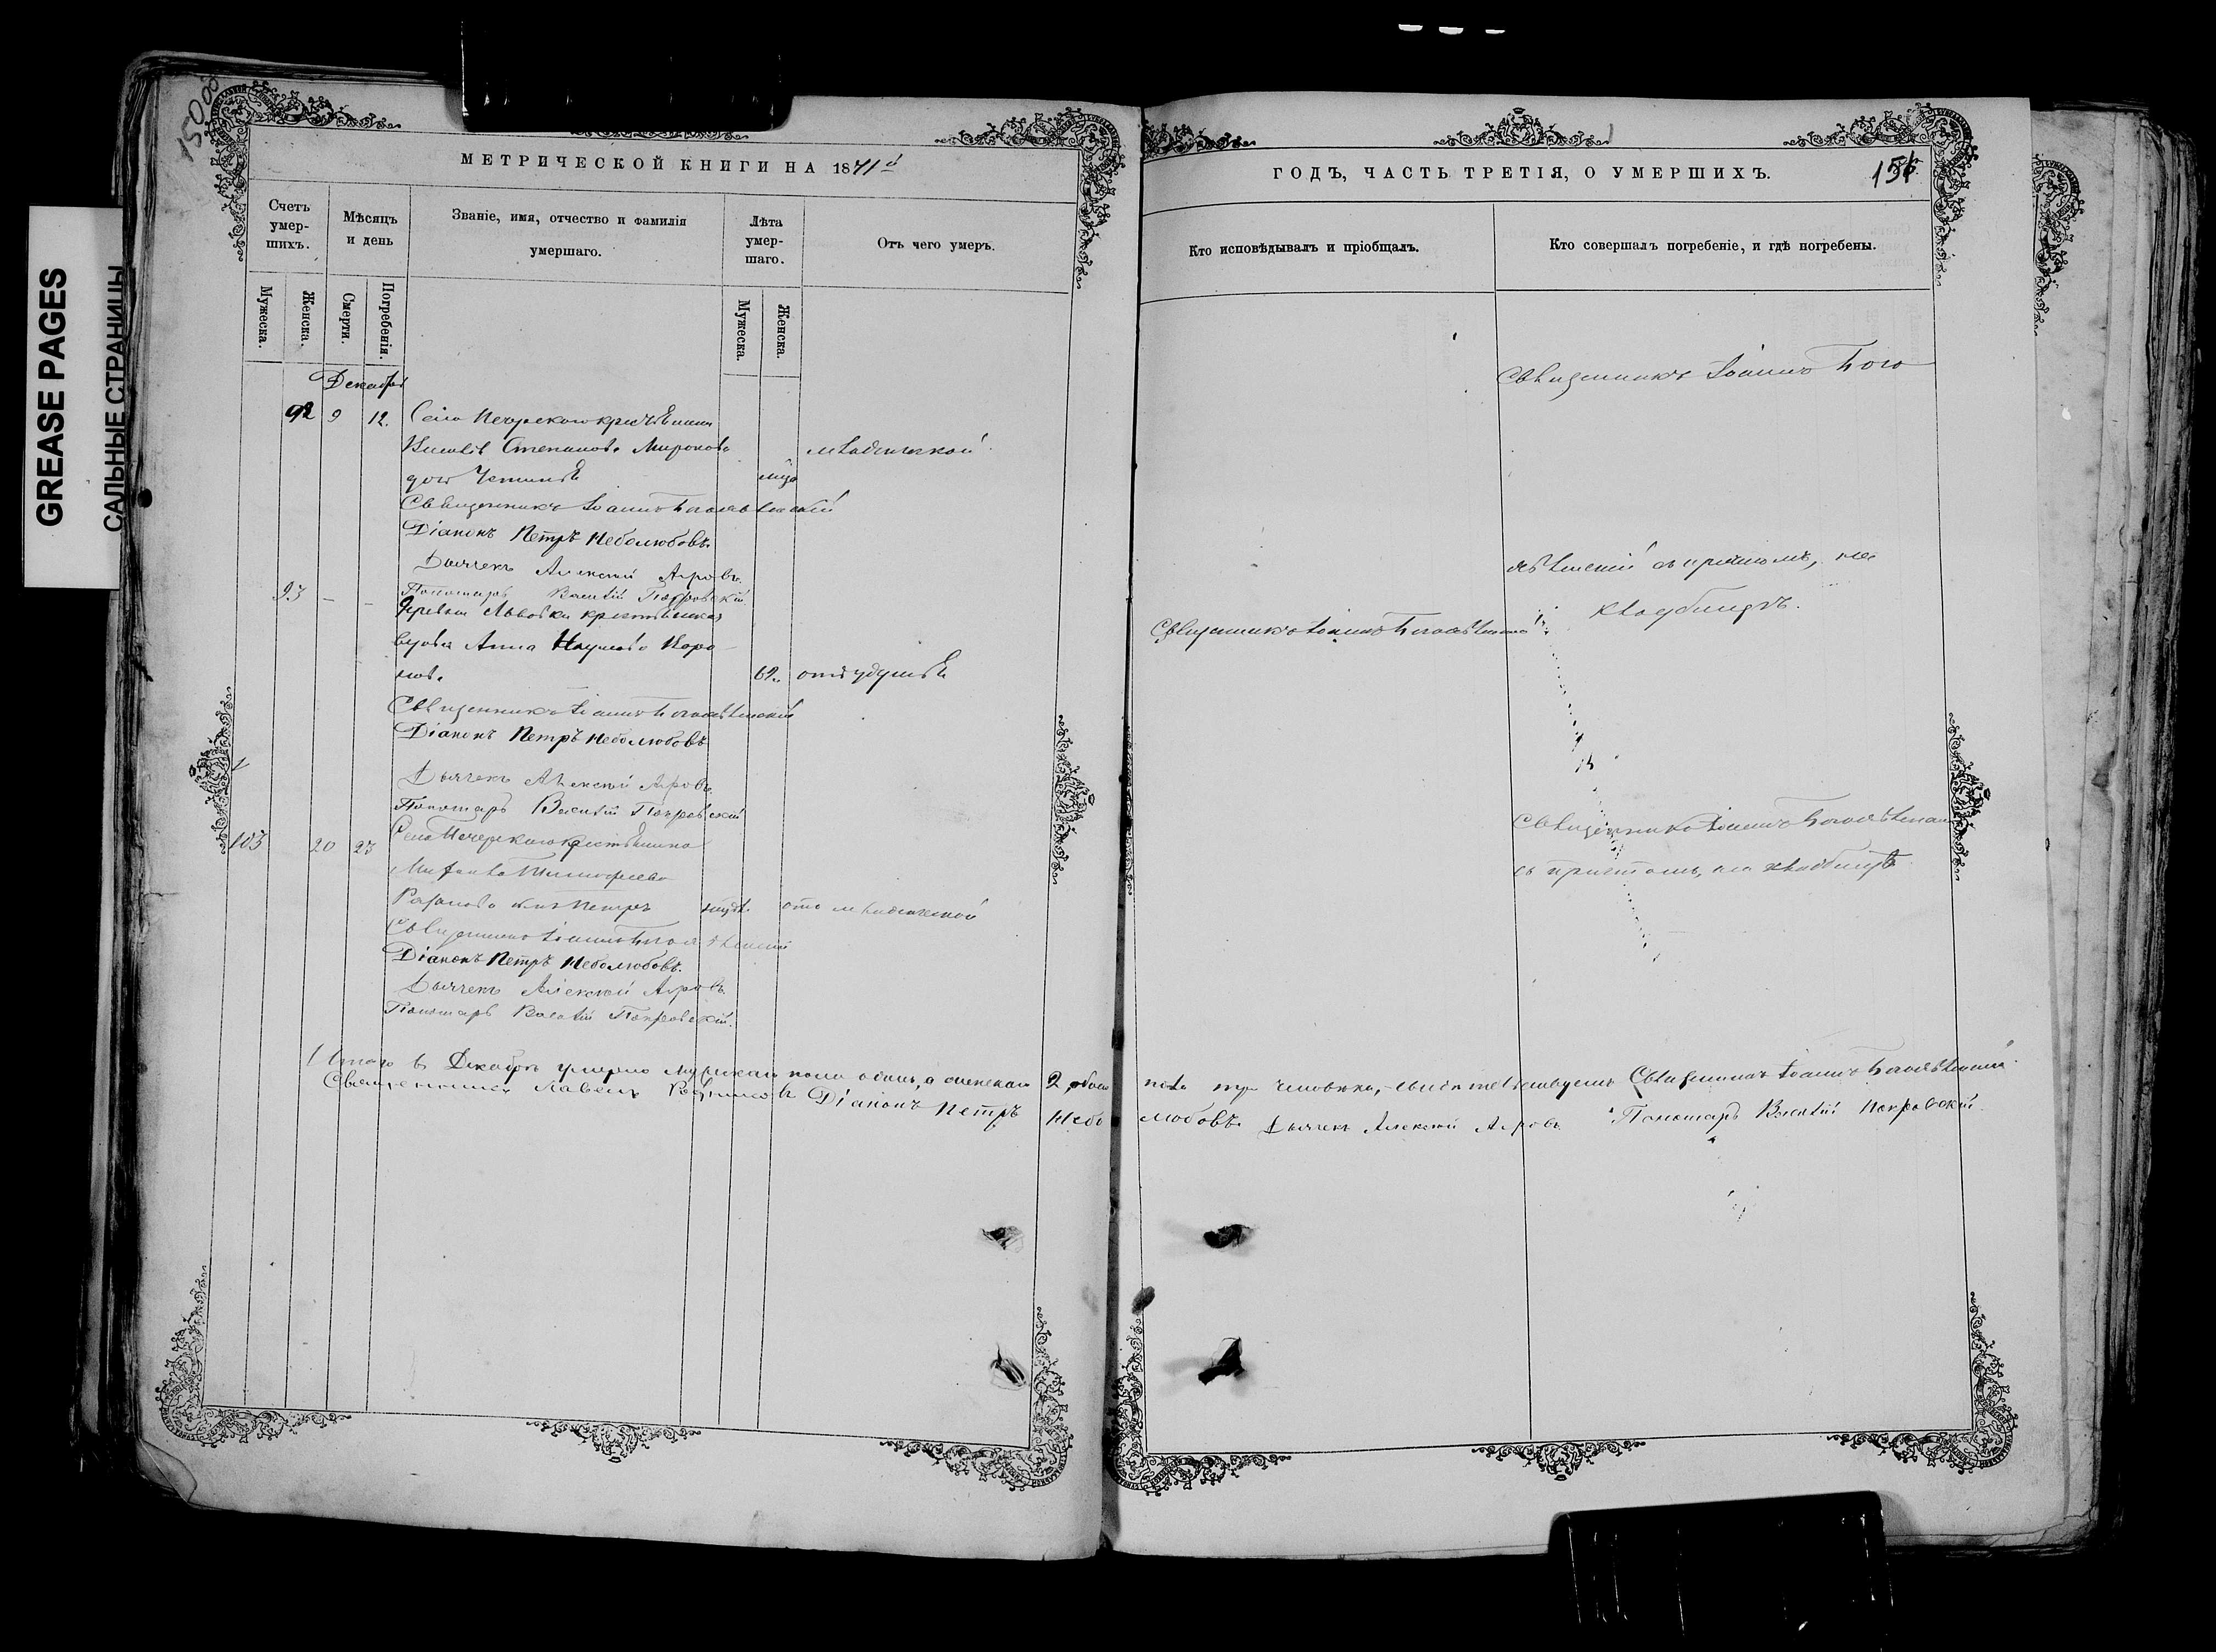 GREASE PAGES
САЛЬНЫЕ СТРАНИЦЫ
МЕТРИЧЕСКОЙ КНИГИ НА 1871й
Счетъ умер-шихъ.
Мѣсяцъ и день
Званіе, имя, отчество и фамилія умершаго.
Лѣта умер-шаго.
Отъ чего умеръ.
Мужеска.
Женска.
Смерти.
Погребенія.
Мужеска.
Женска.
Декабрь
92 9 12. Села Печерскаго крестьянина
Василія Степанова Миронова младенческой
дочь
Священникъ Іоаннъ Богоявленскій
Діаконъ Петръ Неболюбовъ.
Дьячекъ Алексѣй Агровъ.
Пономарь Василій Покровскій
93 – – Деревни Львовки крестьянская
вдова Анна Наумова
62. отъ удушья
Священникъ Іоаннъ Богоявленскій
Діаконъ Петръ Неболюбовъ
Дьячекъ Алексѣй Агровъ.
Пономарь Василій Покровскій
103 20 23 Села Печерскаго крестьянина
Тимофеева
сынъ Петръ отъ младенческой
Священникъ Іоаннъ Богоявленскій
Діаконъ Петръ Неболюбовъ.
Дьячекъ Алексѣй Агровъ.
Пономарь Василій Покровскій.
Итого въ Декабрѣ умерло мужескаго пола одинъ, а женскаго 2, обоего
Священникъ Павелъ Діаконъ Петръ Небо
ГОДЪ, ЧАСТЬ ТРЕТІЯ, О УМЕРШИХЪ.
Кто исповѣдывалъ и пріобщалъ.
Кто совершалъ погребеніе, и гдѣ погребены.
Священникъ Іоаннъ Бого
явленскій съ причтомъ, на
кладбищѣ.
Священникъ Іоаннъ Богоявленскій
Священникъ Іоаннъ Богоявленскій
съ причтомъ, на кладбищѣ
пола три человѣка, Священникъ Іоаннъ Богоявленскій
любовъ. Дьячекъ Алексѣй Агровъ Пономарь Василій Покровскій.